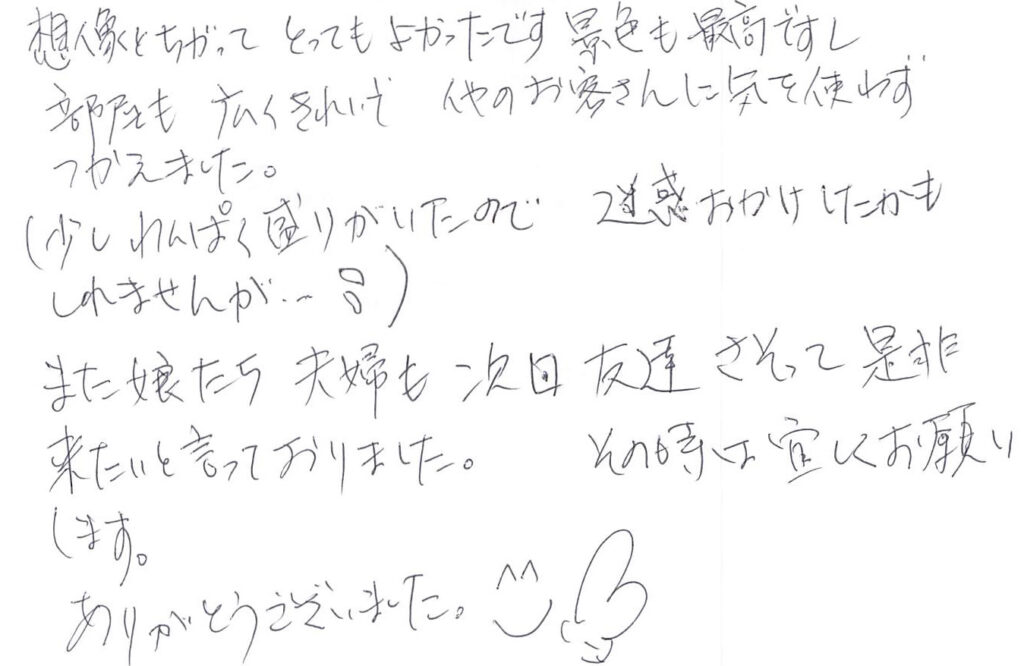 想像とちがって とってもよかったです景色も最高ですし
部屋も 広くきれいで 他のお客さんに気を使わず
つかえました。
(少しわんぱく盛りがいたので 迷惑おかけしたかも
しれませんが…)
また娘たち 夫婦も 次回 友達 さそって 是非
来たいと言っておりました。 その時は宜しくお願い
します。
ありがとうございました。